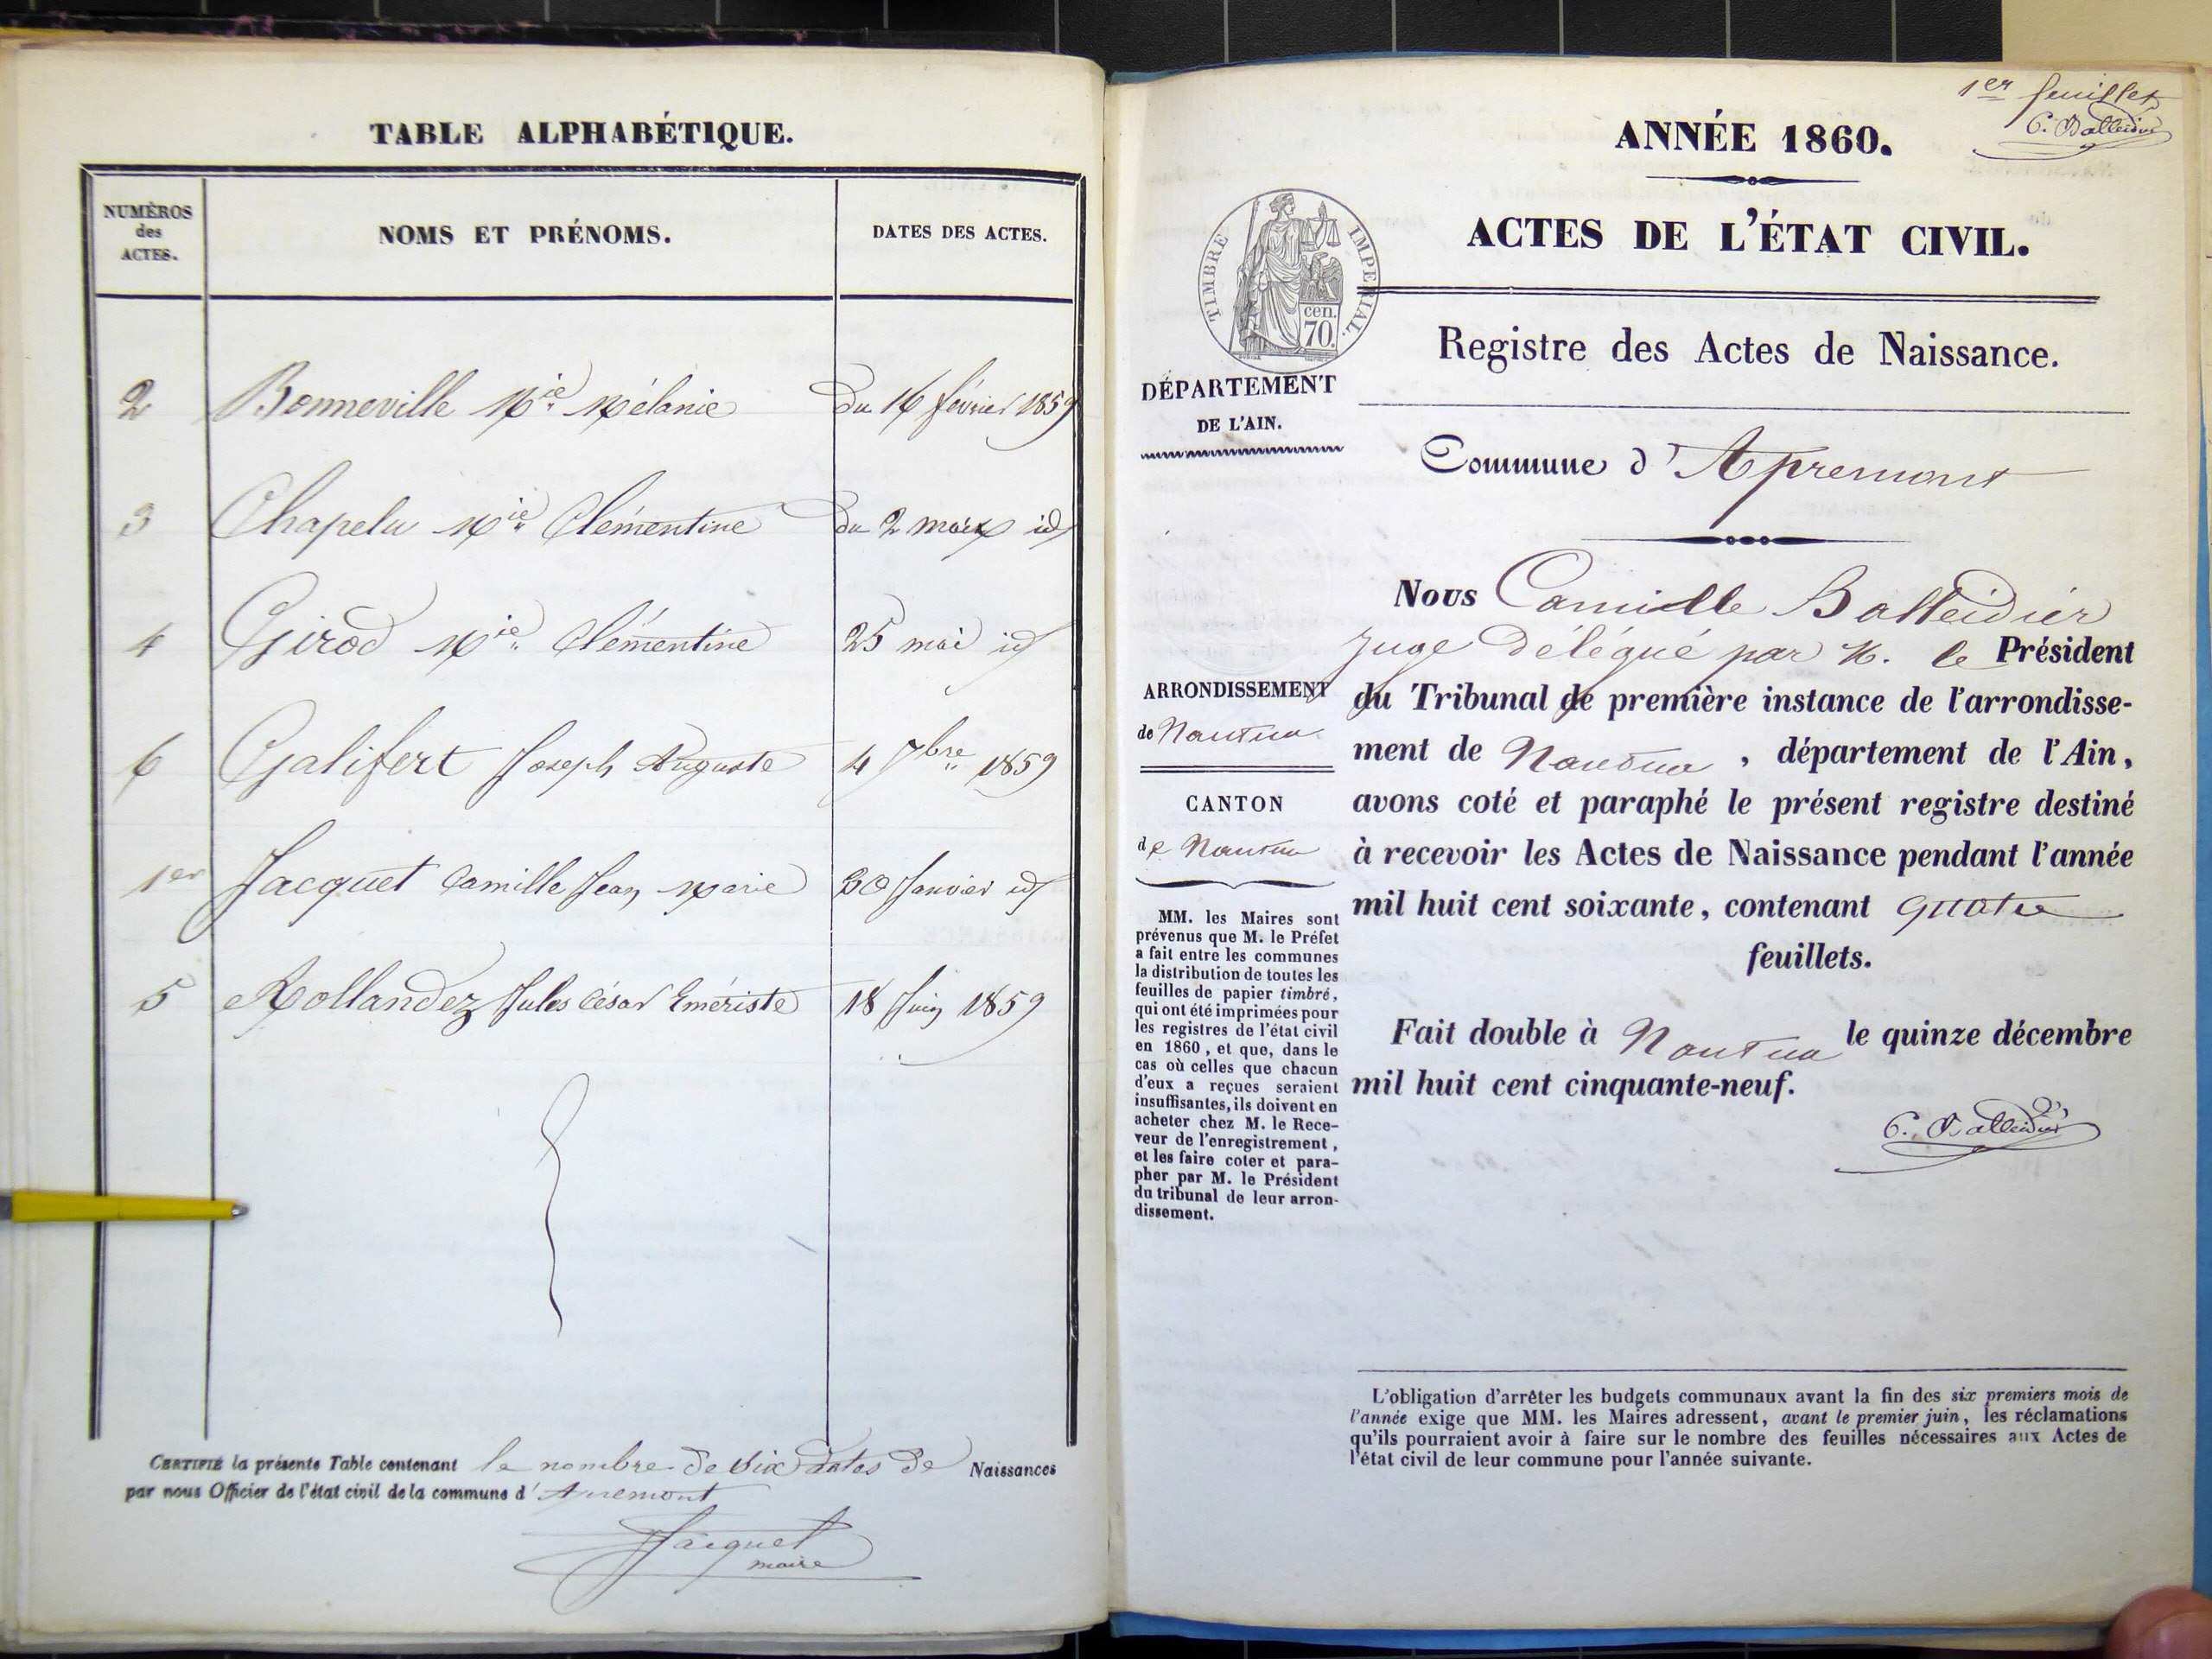 TABLE ALPHABÉTIQUE.
NUMÉROS
des
ACTES.
NOMS ET PRÉNOMS.
DATES DES ACTES.
2 Bonneville Mie Mélanie du 16 février 1859
3 Chapelu Mie Clémentine du 2 mars id
4 Girod Mie Clémentine 25 mai id
6 Galifert Joseph Auguste 4 7bre 1859
1er Jacquet Camille Jean Marie 30 Janvier id
5 Rollandez Jules César Emériste 18 Juin 1859
CERTIFIÉ la présente Table contenant le nombre de Six actes de Naissances
par nous Officier de l'état civil de la commune d'Apremont
Jacquet
maire
1er feuillet
C. Balleidier
ANNÉE 1860.
ACTES DE L'ÉTAT CIVIL.
TIMBRE IMPERIAL.
cen.
70.
Registre des Actes de Naissance.
DÉPARTEMENT
DE L'AIN.
Commune d'Apremont
Nous Camille Balleidier
Juge délégué par M. le Président
du Tribunal de première instance de l'arrondisse-
ment de Nantua, département de l'Ain,
avons coté et paraphé le présent registre destiné
à recevoir les Actes de Naissance pendant l'année
mil huit cent soixante, contenant quatre
feuillets.
Fait double à Nantua le quinze décembre
mil huit cent cinquante-neuf.
C. Balleidier
ARRONDISSEMENT
de Nantua
CANTON
de Nantua
MM. les Maires sont
prévenus que M. le Préfet
a fait entre les communes
la distribution de toutes les
feuilles de papier timbré,
qui ont été imprimées pour
les registres de l'état civil
en 1860, et que, dans le
cas où celles que chacun
d'eux a reçues seraient
insuffisantes, ils doivent en
acheter chez M. le Rece-
veur de l'enregistrement,
et les faire coter et para-
pher par M. le Président
du tribunal de leur arron-
dissement.
L'obligation d'arrêter les budgets communaux avant la fin des six premiers mois de
l'année exige que MM. les Maires adressent, avant le premier juin, les réclamations
qu'ils pourraient avoir à faire sur le nombre des feuilles nécessaires aux Actes de
l'état civil de leur commune pour l'année suivante.